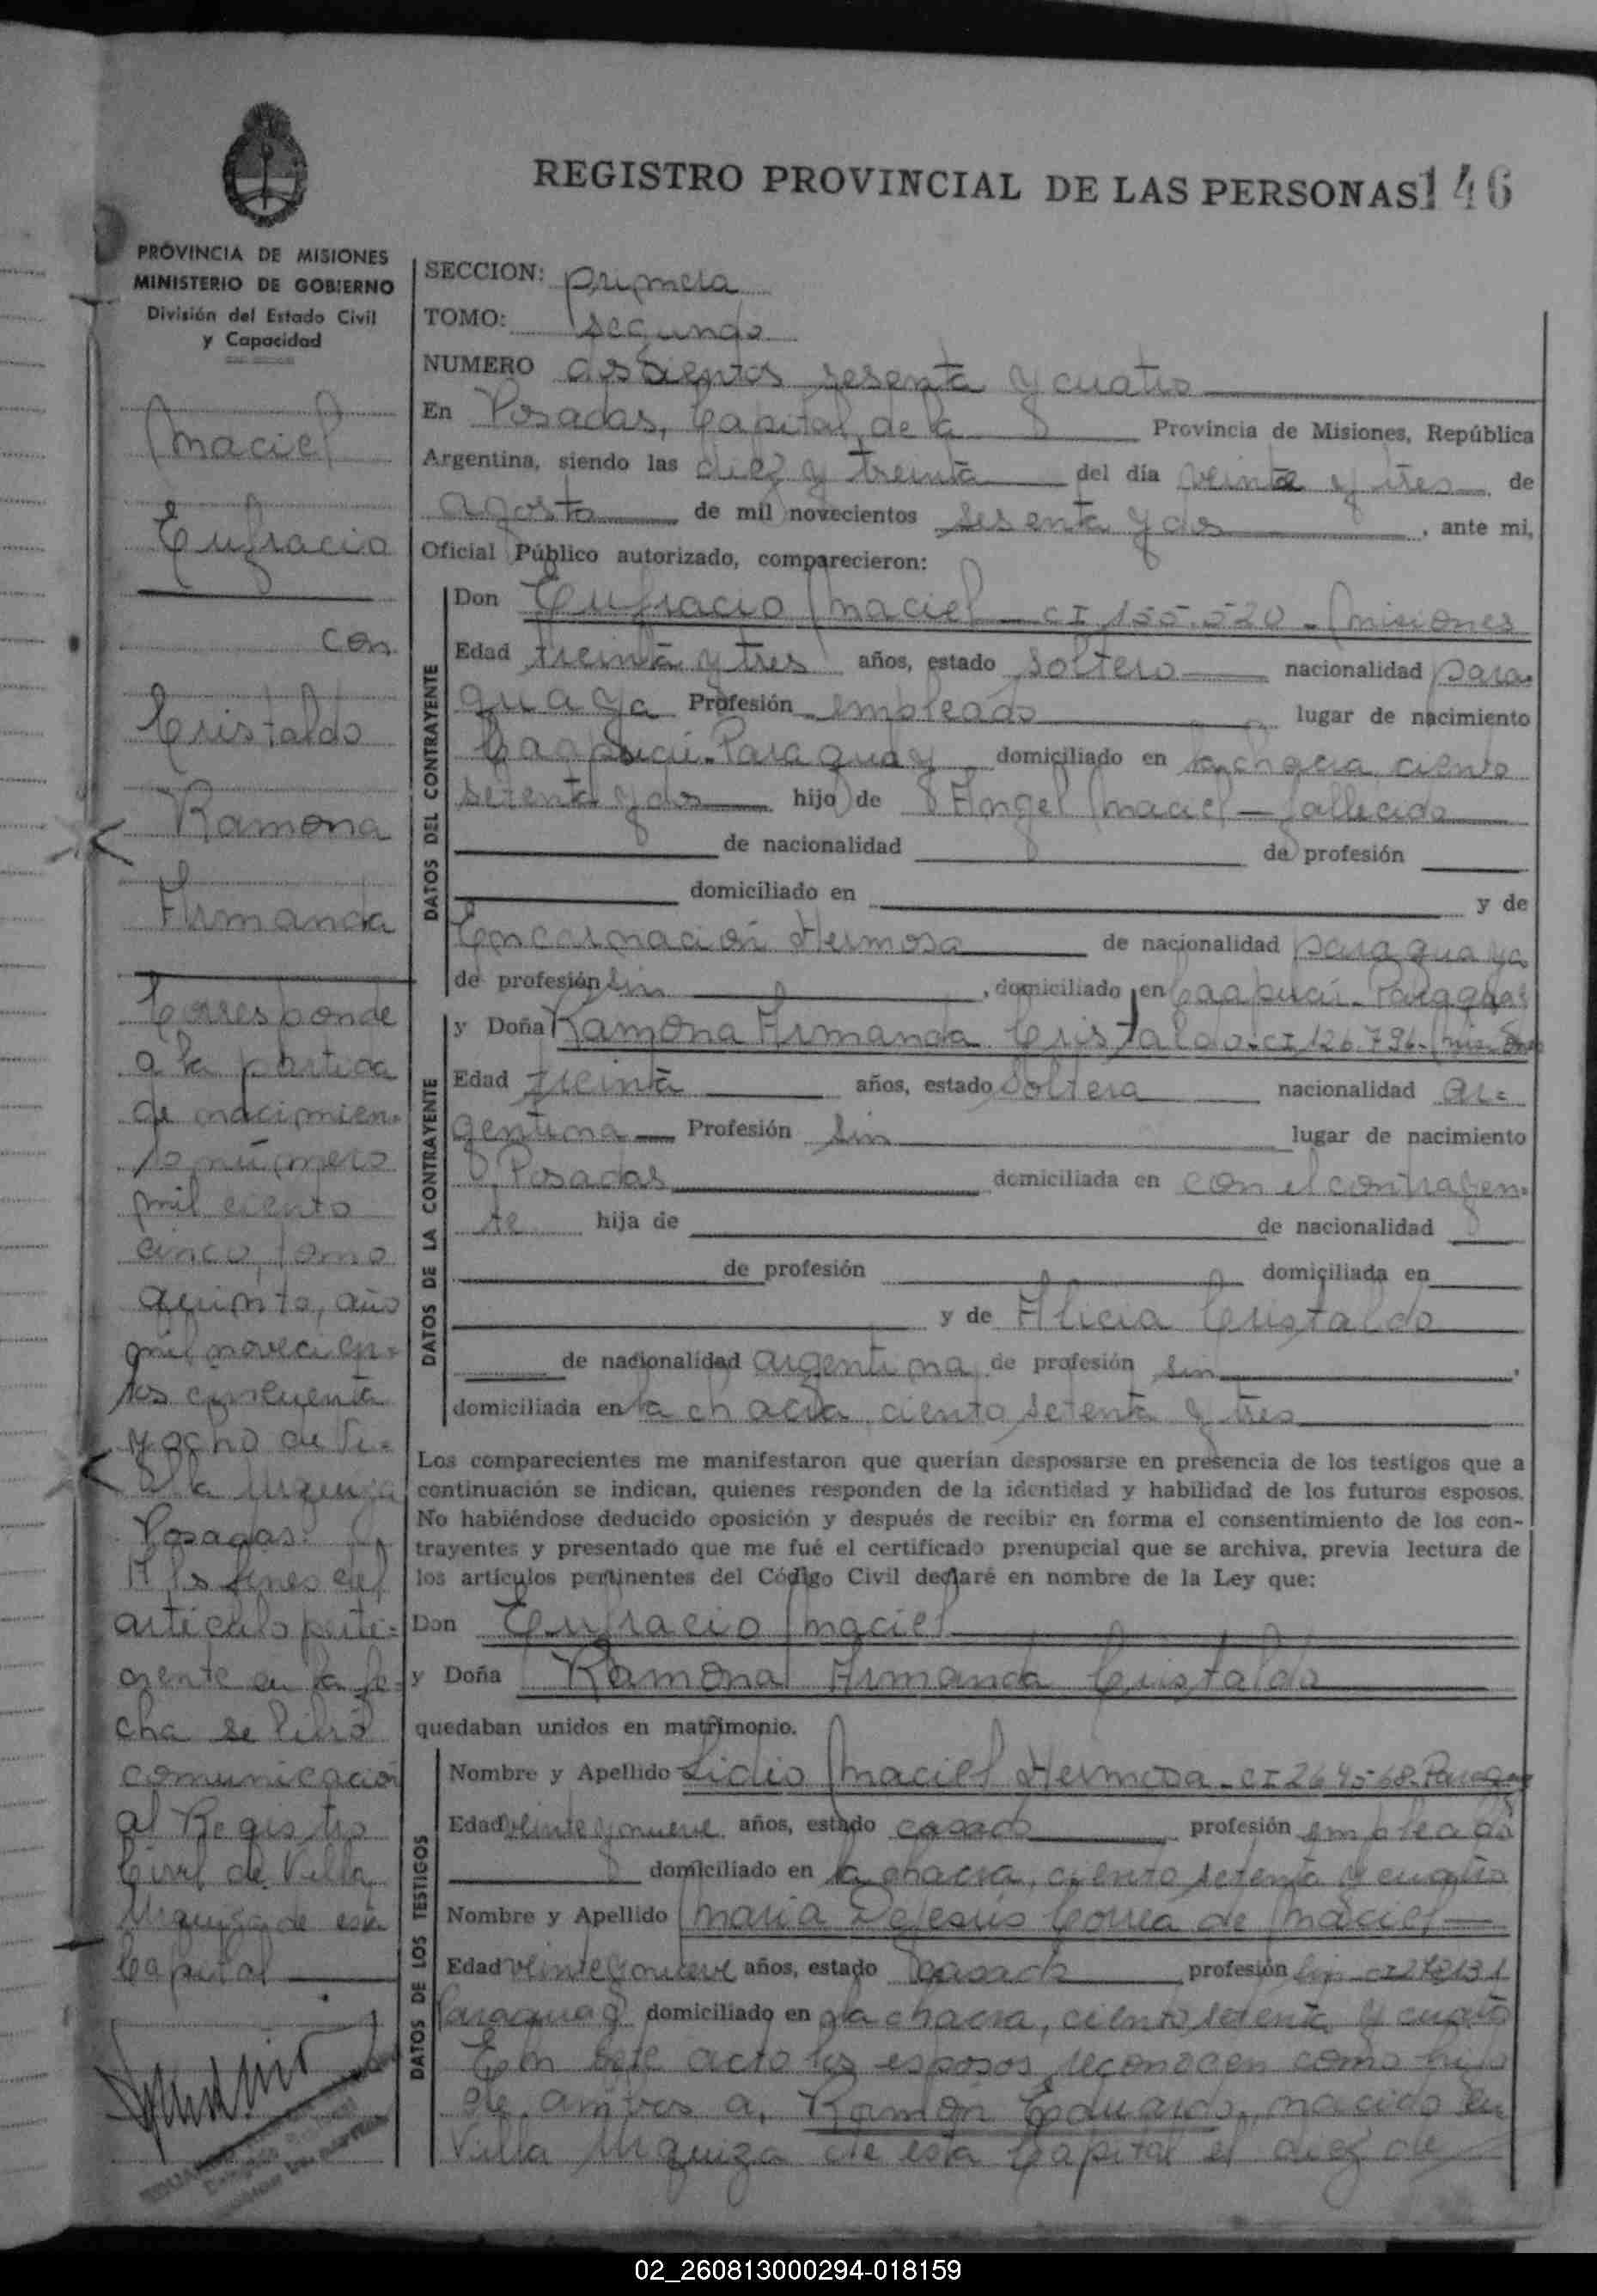 REGISTRO PROVINCIAL DE LAS PERSONAS 146
PROVINCIA DE MISIONES
MINISTERIO DE GOBIERNO
División del Estado Civil
y Capacidad
Maciel
Eufracio
con
Cristaldo
Ramona
Armanda
Corresponde
a la partida
de nacimien-
to número
mil ciento
cinco, tomo
quinto, año
mil novecien-
tos cincuenta
y ocho de Vi-
lla Urquiza
Posadas.
A ls fines del
artículo perti-
nente en la fe-
cha se libró
comunicación
al Registro
Civil de Villa
Urquiza de esta
Capital
SECCION: primera
TOMO: segundo
NUMERO doscientos sesenta y cuatro
En Posadas, Capital de la Provincia de Misiones, República
Argentina, siendo las diez y treinta del día veinte y tres de
agosto de mil novecientos sesenta y dos, ante mi,
Oficial Público autorizado, comparecieron:
DATOS DEL CONTRAYENTE
Don Eufracio Maciel CI 155.520 - Misiones
Edad treinta y tres años, estado soltero nacionalidad para-
guaya Profesión empleado lugar de nacimiento
Caapucú - Paraguay domiciliado en la chacra ciento
setenta y dos hijo de Angel Maciel - fallecido
de nacionalidad de profesión
domiciliado en y de
Encarnación Hermosa de nacionalidad paraguaya
de profesión sin, domiciliado en Caapucú - Paraguay
DATOS DE LA CONTRAYENTE
y Doña Ramona Armanda Cristaldo - CI 126.796 - Misiones
Edad treinta años, estado soltera nacionalidad ar-
gentina Profesión sin lugar de nacimiento
Posadas domiciliada en con el contrayen-
te hija de de nacionalidad
de profesión domiciliada en
y de Alicia Cristaldo
de nacionalidad argentina de profesión sin,
domiciliada en la chacra ciento setenta y tres
Los comparecientes me manifestaron que querían desposarse en presencia de los testigos que a
continuación se indican, quienes responden de la identidad y habilidad de los futuros esposos.
No habiéndose deducido oposición y después de recibir en forma el consentimiento de los con-
trayentes y presentado que me fué el certificado prenupcial que se archiva, previa lectura de
los artículos pertinentes del Código Civil declaré en nombre de la Ley que:
Don Eufracio Maciel
y Doña Ramona Armanda Cristaldo
quedaban unidos en matrimonio.
DATOS DE LOS TESTIGOS
Nombre y Apellido Lidio Maciel Hermosa - CI 264568 - Paraguay
Edad veinte y nueve años, estado casado profesión empleado
domiciliado en la chacra, ciento setenta y cuatro
Nombre y Apellido Maria DeJesús Correa de Maciel
Edad veinte y nueve años, estado casada profesión sin CI
Paraguay domiciliado en la chacra, ciento setenta y cuatro
En este acto los esposos reconocen como hijo
de ambos a, Ramón Eduardo, nacido en
Villa Urquiza de esta Capital el diez de
02_260813000294-018159